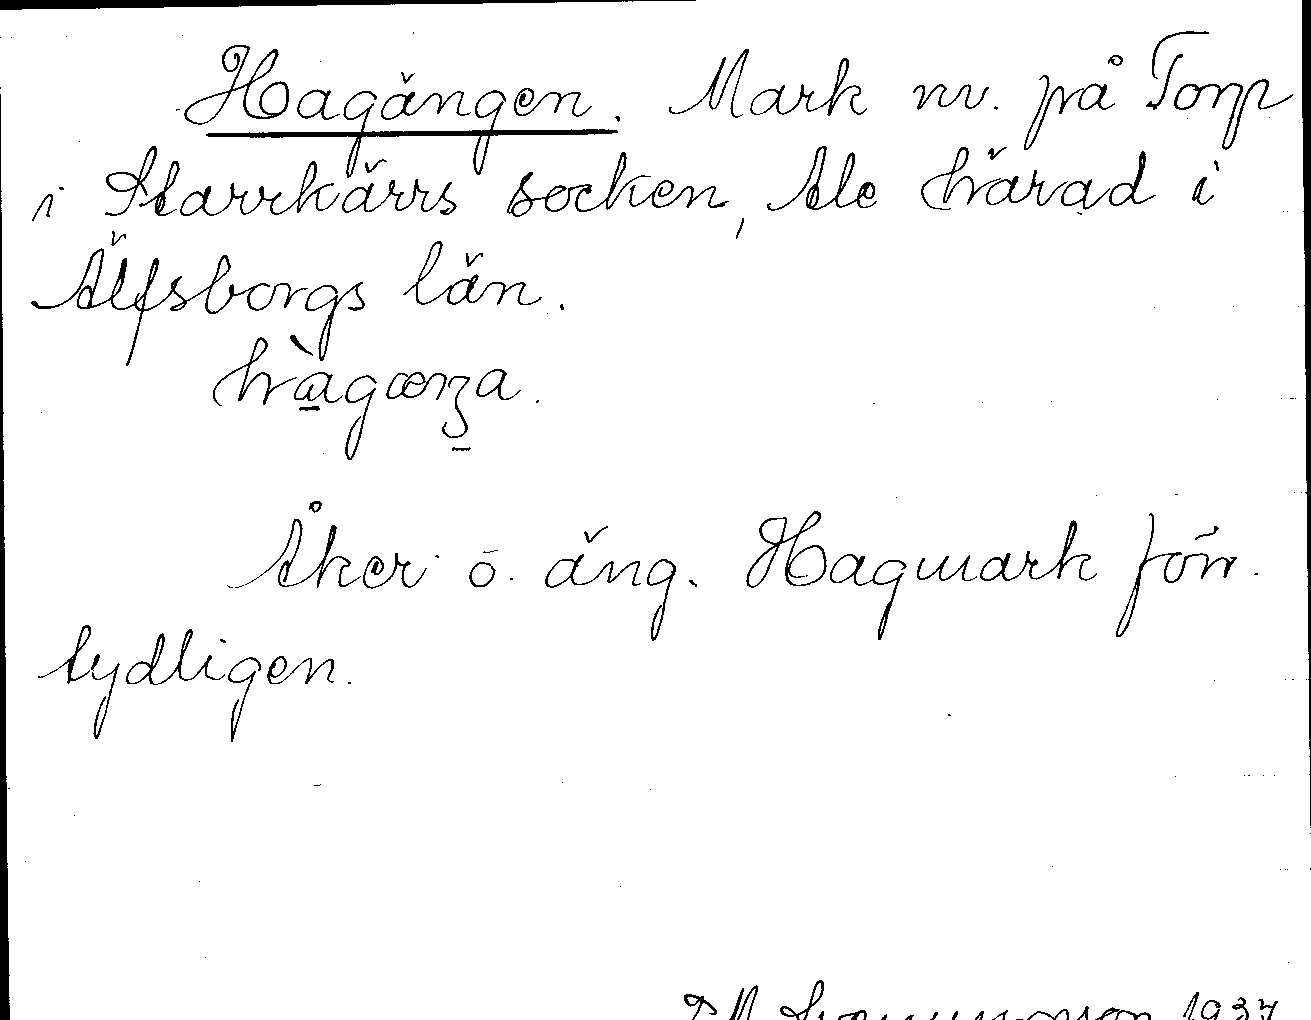 Hagängen. Mark nv. på Torp
i Starrkärrs socken, Ale härad i
Älfsborgs län.
hàgænʒa.
Åker o. äng. Hagmark förr
tydligen.
1937